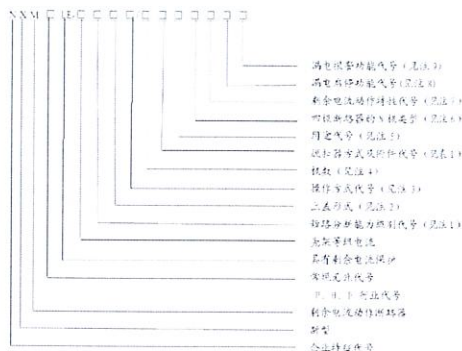 NNM □ LE □ □ □ □ □ □ □ □ □ □ □
漏电报警功能代号（见注9）
漏电功能代号（见注8）
剩余电流动作特性代号（见注7）
四极断路器的N极类型（见注6）
用途代号（见注5）
脱扣器方式及附件代号（见表1）
极数（见注4）
操作方式代号（见注3）
（见注2）
短路分断能力级别代号（见注1）
壳架等级电流
具有剩余电流保护
常规无代号
剩余电流动作断路器
新型
企业特征代号